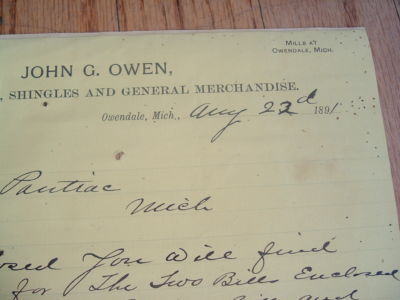 MILLS AT
OWENDALE, MICH.
JOHN G. OWEN,
, SHINGLES AND GENERAL MERCHANDISE.
Owendale, Mich., Aug 22d 1891
Pontiac
Mich
osed You Will find
for The Two Bills Enclosed